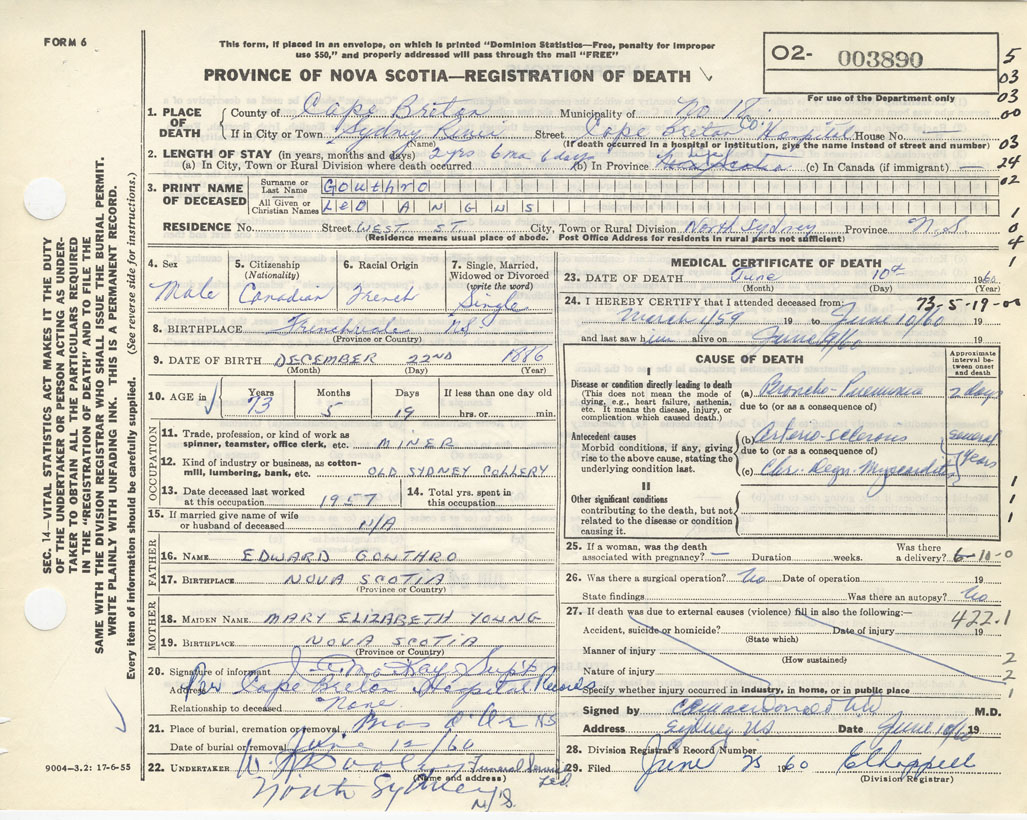 FORM 6
This form, if placed in an envelope, on which is printed "Dominion Statistics—Free, penalty for improper
use $50," and properly addressed will pass through the mail "FREE"
PROVINCE OF NOVA SCOTIA—REGISTRATION OF DEATH
O2- 003890
For use of the Department only
5
03
03
00
03
24
02
1
0
4
1
1. PLACE OF DEATH
County of Cape Breton Municipality of No 18.
If in City or Town Sydney River Street Cape Breton Co. Hospital House No. —
(Name) (If death occurred in a hospital or institution, give the name instead of street and number)
2. LENGTH OF STAY (in years, months and days) 2 yrs 6 mo 6 days
(a) In City, Town or Rural Division where death occurred (b) In Province life (c) In Canada (if immigrant) —
3. PRINT NAME OF DECEASED
Surname or Last Name Gouthro
All Given or Christian Names LEO ANGUS
RESIDENCE No. Street WEST ST. City, Town or Rural Division North Sydney Province N.S.
(Residence means usual place of abode. Post Office Address for residents in rural parts not sufficient)
4. Sex
Male
5. Citizenship
(Nationality)
Canadian
6. Racial Origin
French
7. Single, Married, Widowed or Divorced
(write the word)
Single
8. BIRTHPLACE Frenchvale NS
(Province or Country)
9. DATE OF BIRTH DECEMBER 22ND 1886
(Month) (Day) (Year)
10. AGE in
Years 73
Months 5
Days 19
If less than one day old
hrs. or min.
OCCUPATION
11. Trade, profession, or kind of work as
spinner, teamster, office clerk, etc. MINER
12. Kind of industry or business, as cotton-
mill, lumbering, bank, etc. OLD SYDNEY COLLERY
13. Date deceased last worked
at this occupation 1957
14. Total yrs. spent in
this occupation
15. If married give name of wife
or husband of deceased N/A
FATHER
16. NAME EDWARD GOUTHRO
17. BIRTHPLACE NOVA SCOTIA
MOTHER
18. MAIDEN NAME MARY ELIZABETH YOUNG
19. BIRTHPLACE NOVA SCOTIA
(Province or Country)
20. Signature of informant J. A. MacKay Sup't
Address Per Cape Breton Hospital Records
Relationship to deceased None
21. Place of burial, cremation or removal Bras D'Or NS
Date of burial or removal June 12/60
22. UNDERTAKER Funeral Service Ltd.
(Name and address)
North Sydney N/S
MEDICAL CERTIFICATE OF DEATH
23. DATE OF DEATH June 10th 1960
(Month) (Day) (Year)
24. I HEREBY CERTIFY that I attended deceased from: 73-5-19-00
March 1/59 19 to June 10/60 19
and last saw him alive on June 9/60 19
CAUSE OF DEATH
Approximate interval between onset and death
I
Disease or condition directly leading to death
(This does not mean the mode of
dying, e.g., heart failure, asthenia,
etc. It means the disease, injury, or
complication which caused death.)
(a) Broncho-Pneumonia 2 days
due to (or as a consequence of)
Antecedent causes
Morbid conditions, if any, giving
rise to the above cause, stating the
underlying condition last.
(b) Arterio-sclerosis several years
due to (or as a consequence of)
(c) Chr. Degn. Myocarditis
II
Other significant conditions
contributing to the death, but not
related to the disease or condition
causing it.
1
1
1
25. If a woman, was the death
associated with pregnancy? — Duration weeks. Was there
a delivery? 6-10-0
26. Was there a surgical operation? No Date of operation 19
State findings Was there an autopsy? No
27. If death was due to external causes (violence) fill in also the following:—
422.1
Accident, suicide or homicide? Date of injury 19
(State which)
Manner of injury 2
(How sustained)
Nature of injury 2
Specify whether injury occurred in industry, in home, or in public place 1
Signed by M.D.
Address Sydney NS Date June 10/60 19
28. Division Registrar's Record Number
29. Filed June 25 1960 E Chappell
(Division Registrar)
SEC. 14—VITAL STATISTICS ACT MAKES IT THE DUTY
OF THE UNDERTAKER OR PERSON ACTING AS UNDER-
TAKER TO OBTAIN ALL THE PARTICULARS REQUIRED
IN THE "REGISTRATION OF DEATH" AND TO FILE THE
SAME WITH THE DIVISION REGISTRAR WHO SHALL ISSUE THE BURIAL PERMIT.
WRITE PLAINLY WITH UNFADING INK. THIS IS A PERMANENT RECORD.
Every item of information should be carefully supplied. (See reverse side for instructions.)
9004-3.2: 17-6-55